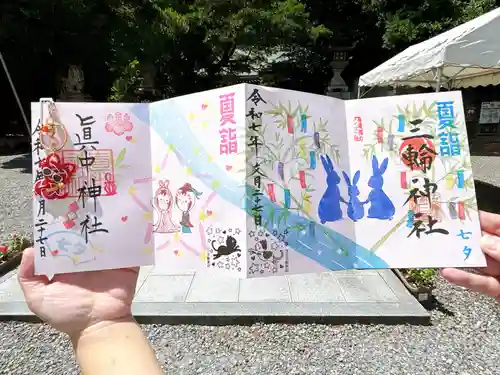 夏詣
七夕
三輪神社
令和七年文月二十七日
夏詣
眞中神社
月二十七日